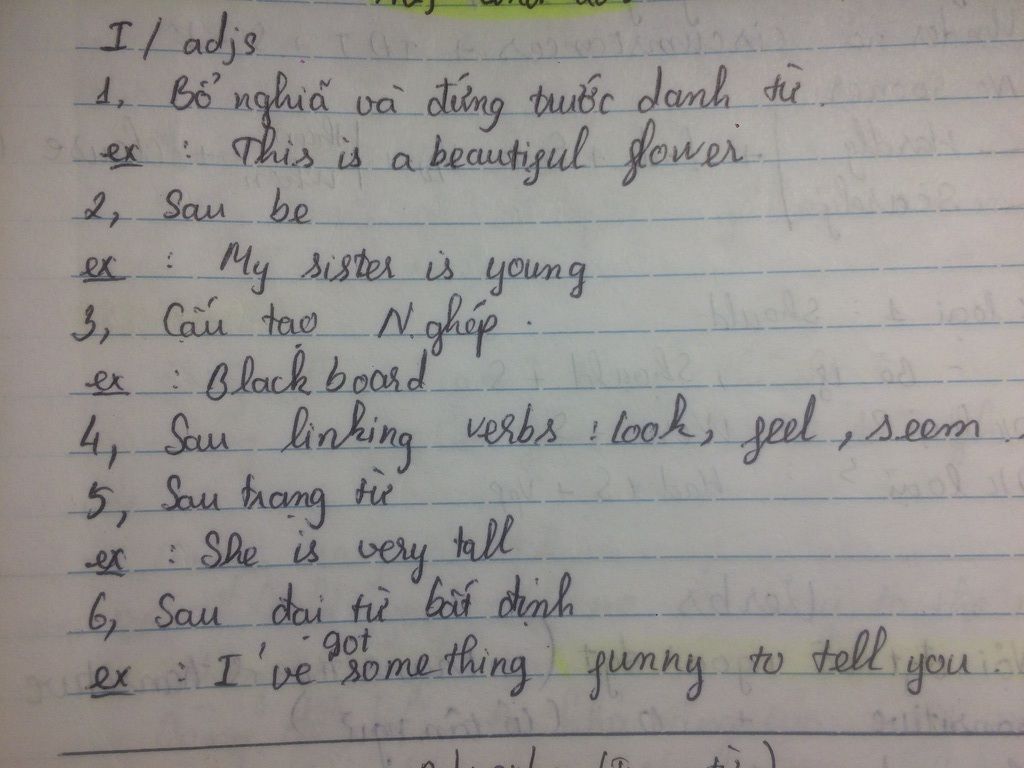 I/ adjs
1, Bổ nghiã và đứng trước danh từ.
ex : This is a beautiful flower
2, Sau be
ex : My sister is young
3, Cấu tạo N.ghép.
ex : Black board
4, Sau linking verbs : look, feel, seem.
5, Sau trạng từ
ex : She is very tall
6, Sau đại từ bất định
ex : I've got something funny to tell you